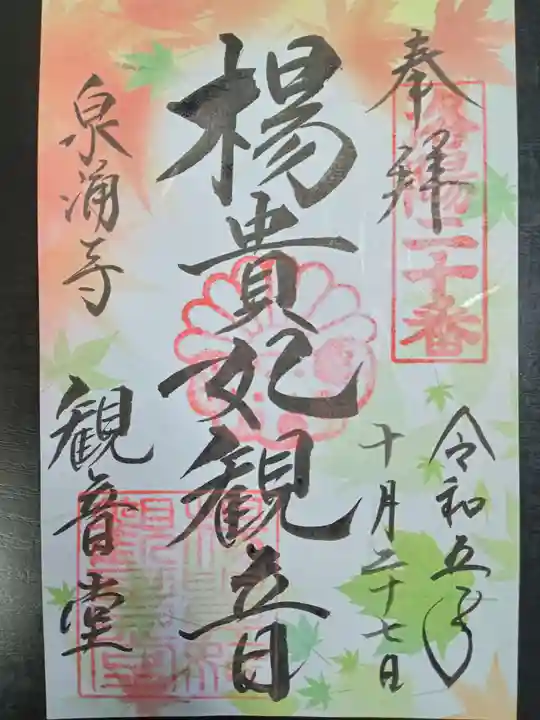 奉拝
洛陽二十番
令和五年
十月二十七日
楊貴妃観音
泉涌寺
観音堂